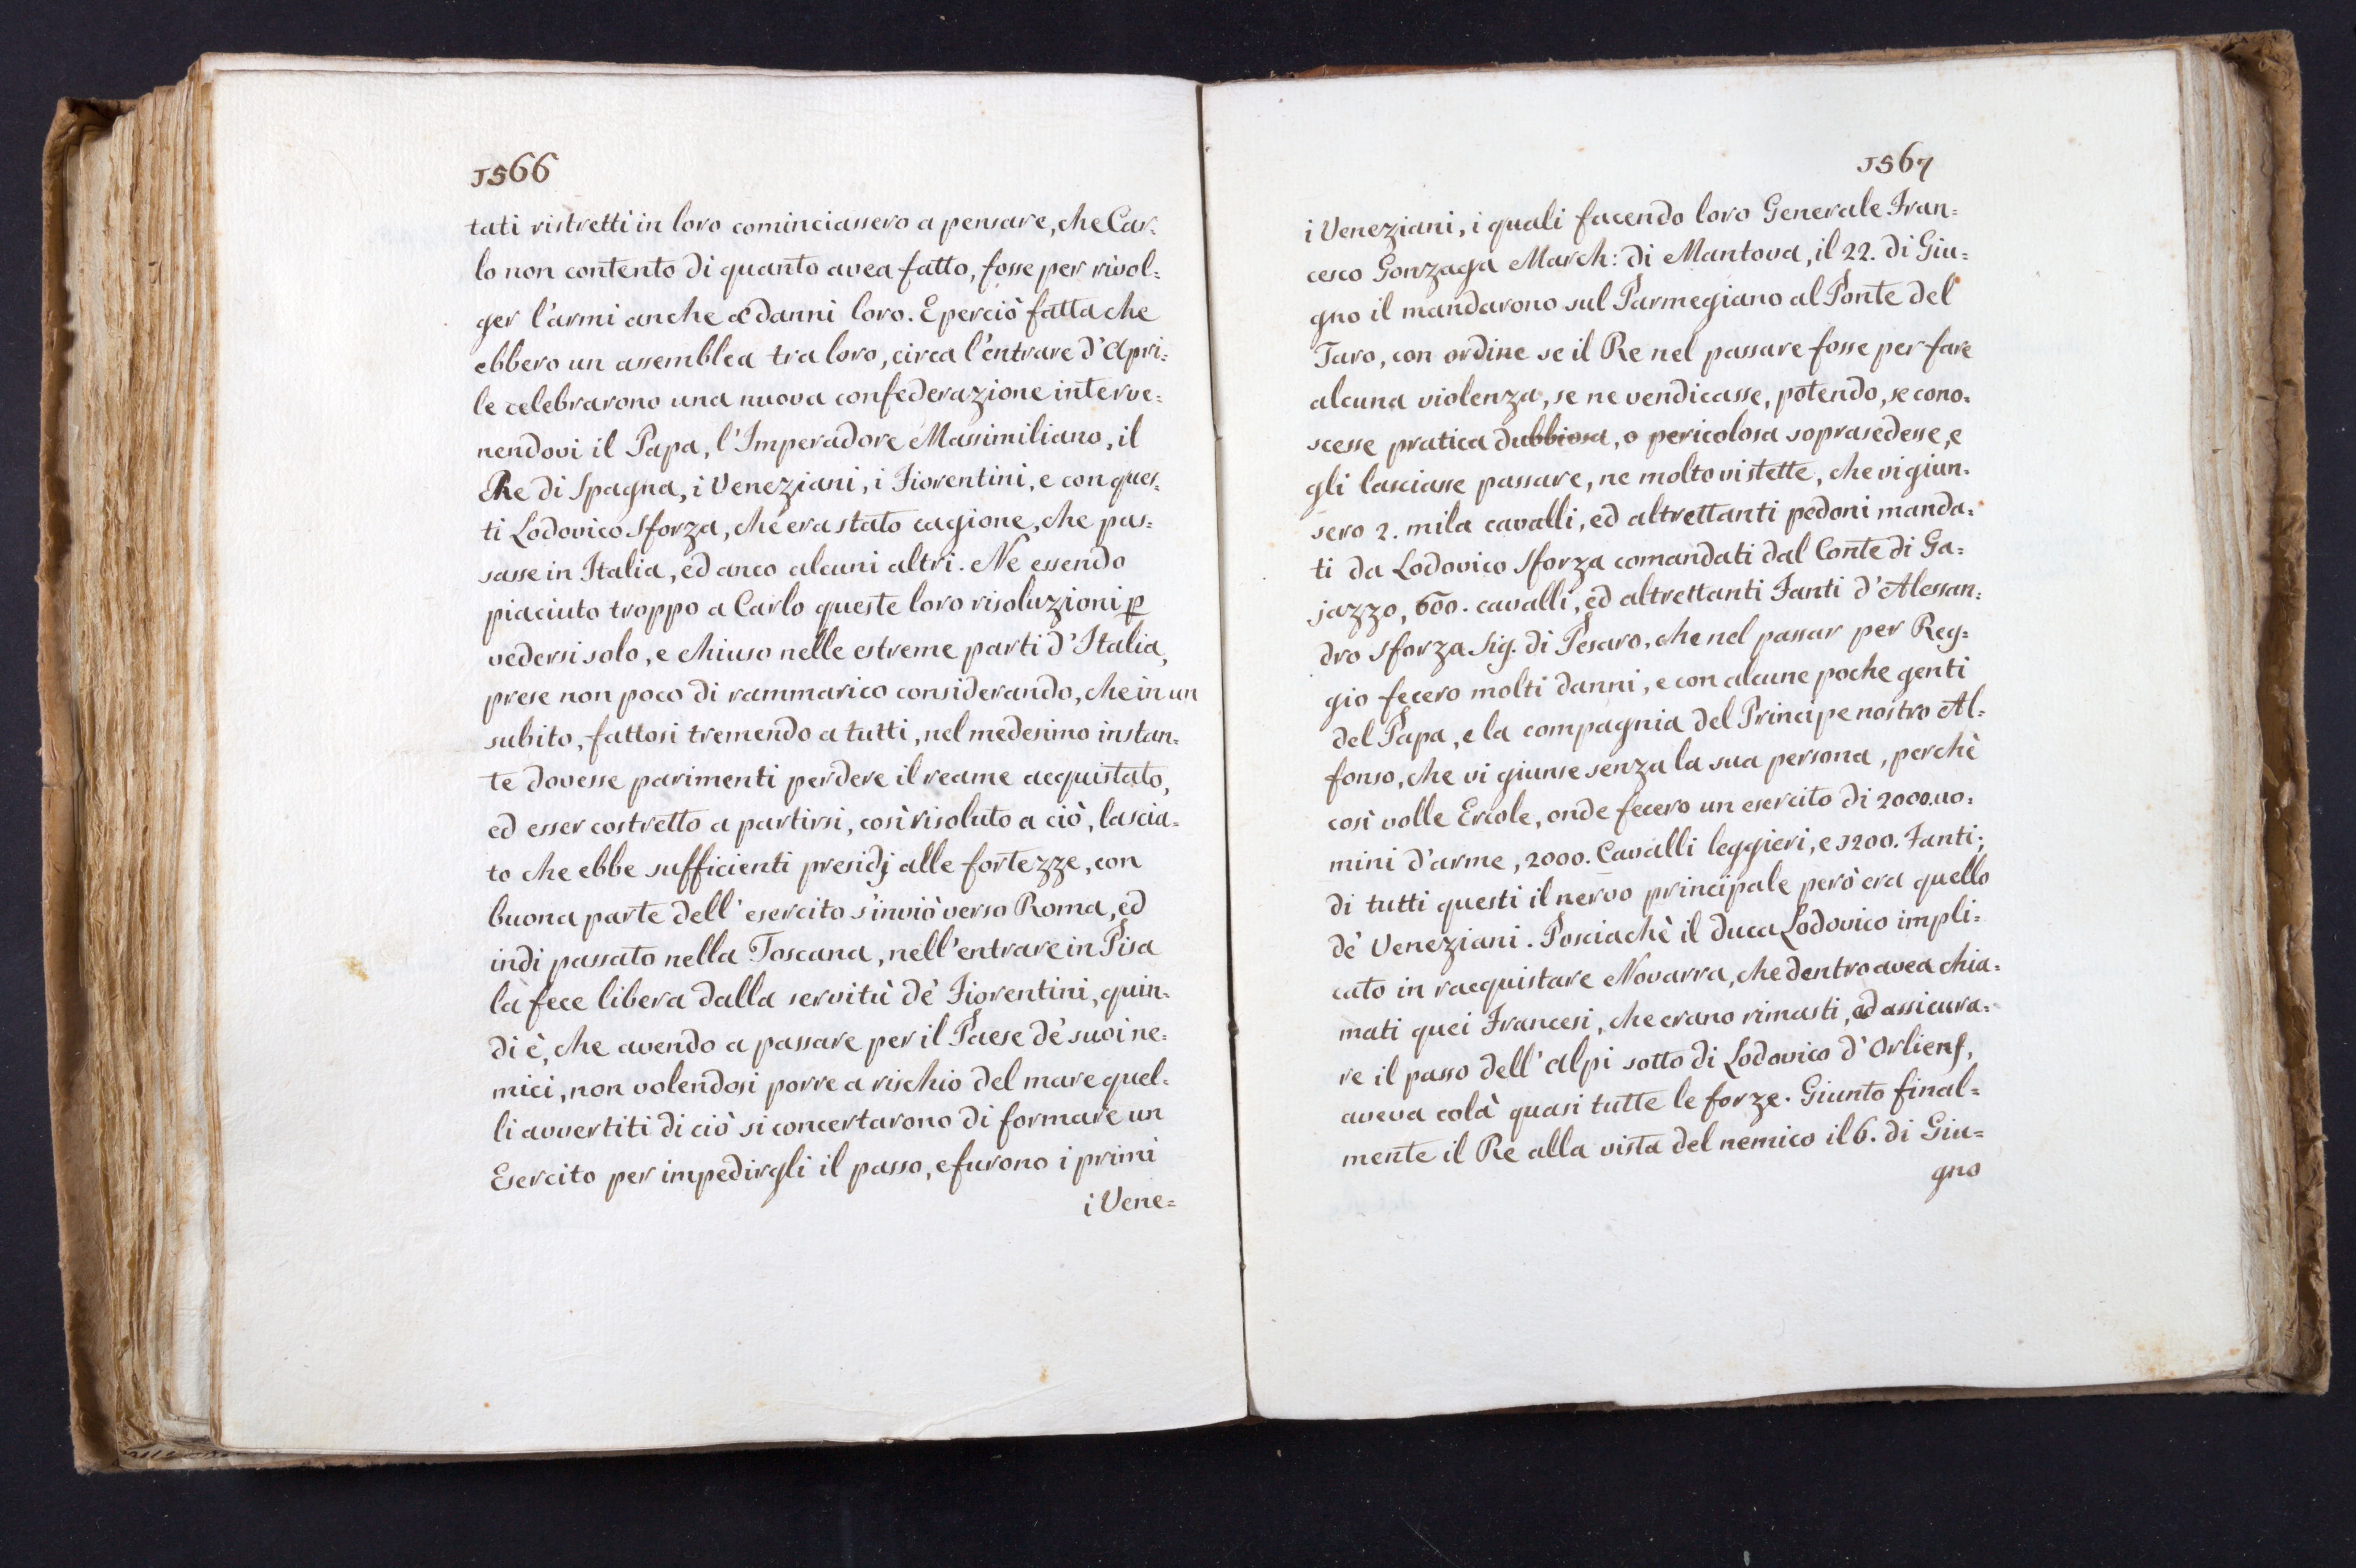 1566
tati ristretti in loro cominciassero a pensare, che Car=
lo non contento di quanto avea fatto, fosse per rivol=
ger l'armi anche a' danni loro. E perciò fatta che
ebbero un assemblea tra loro, circa l'entrare d'Apri=
le celebrarono una nuova confederazione interve=
nendovi il Papa, l'Imperadore Massimiliano, il
Re di Spagna, i Veneziani, i Fiorentini, e con ques=
ti Lodovico Sforza, ch'era stato cagione, che pas=
sasse in Italia, ed anco alcuni altri. Ne essendo
piaciuto troppo a Carlo queste loro risoluzioni p
vedersi solo, e chiuso nelle estreme parti d'Italia,
prese non poco di rammarico considerando, che in un
subito, fattosi tremendo a tutti, nel medesimo instan=
te dovesse parimenti perdere il reame acquistato,
ed esser costretto a partirsi, così risoluto a ciò, lascia=
to che ebbe sufficienti presidj alle fortezze, con
buona parte dell'esercito s'inviò verso Roma, ed
indi passato nella Toscana, nell'entrare in Pisa
la fece libera dalla servitù de' Fiorentini, quin=
di è, che avendo a passare per il Paese de' suoi ne=
mici, non volendosi porre a rischio del mare quel=
li avvertiti di ciò si concertarono di formare un
Esercito per impedirgli il passo, e furono i primi
i Vene=
1567
i Veneziani, i quali facendo loro Generale Fran=
cesco Gonzaga March: di Mantova, il 22. di Giu=
gno il mandarono sul Parmegiano al Ponte del
Taro, con ordine se il Re nel passare fosse per fare
alcuna violenza, se ne vendicasse, potendo, se cono=
scesse pratica dubbiosa, o pericolosa soprasedesse, e
gli lasciasse passare, ne molto vi stette, che vi giun=
sero 2. mila cavalli, ed altrettanti pedoni manda=
ti da Lodovico Sforza comandati dal Conte di Ga=
jazzo, 600. cavalli, ed altrettanti Fanti d'Alessan=
dro Sforza Sig. di Pesaro, che nel passar per Reg=
gio fecero molti danni, e con alcune poche genti
del Papa, e la compagnia del Principe nostro Al=
fonso, che vi giunse senza la sua persona, perchè
così volle Ercole, onde fecero un esercito di 2000. uo=
mini d'arme, 2000. Cavalli leggieri, e 1200. Fanti;
di tutti questi il nervo principale però era quello
de' Veneziani. Posciachè il duca Lodovico impli=
cato in racquistare Novarra, che dentro avea chia=
mati quei Francesi, che erano rimasti, ad assicura=
re il passo dell'Alpi sotto di Lodovico d'Orliens,
aveva colà quasi tutte le forze. Giunto final=
mente il Re alla vista del nemico il 6. di Giu=
gno